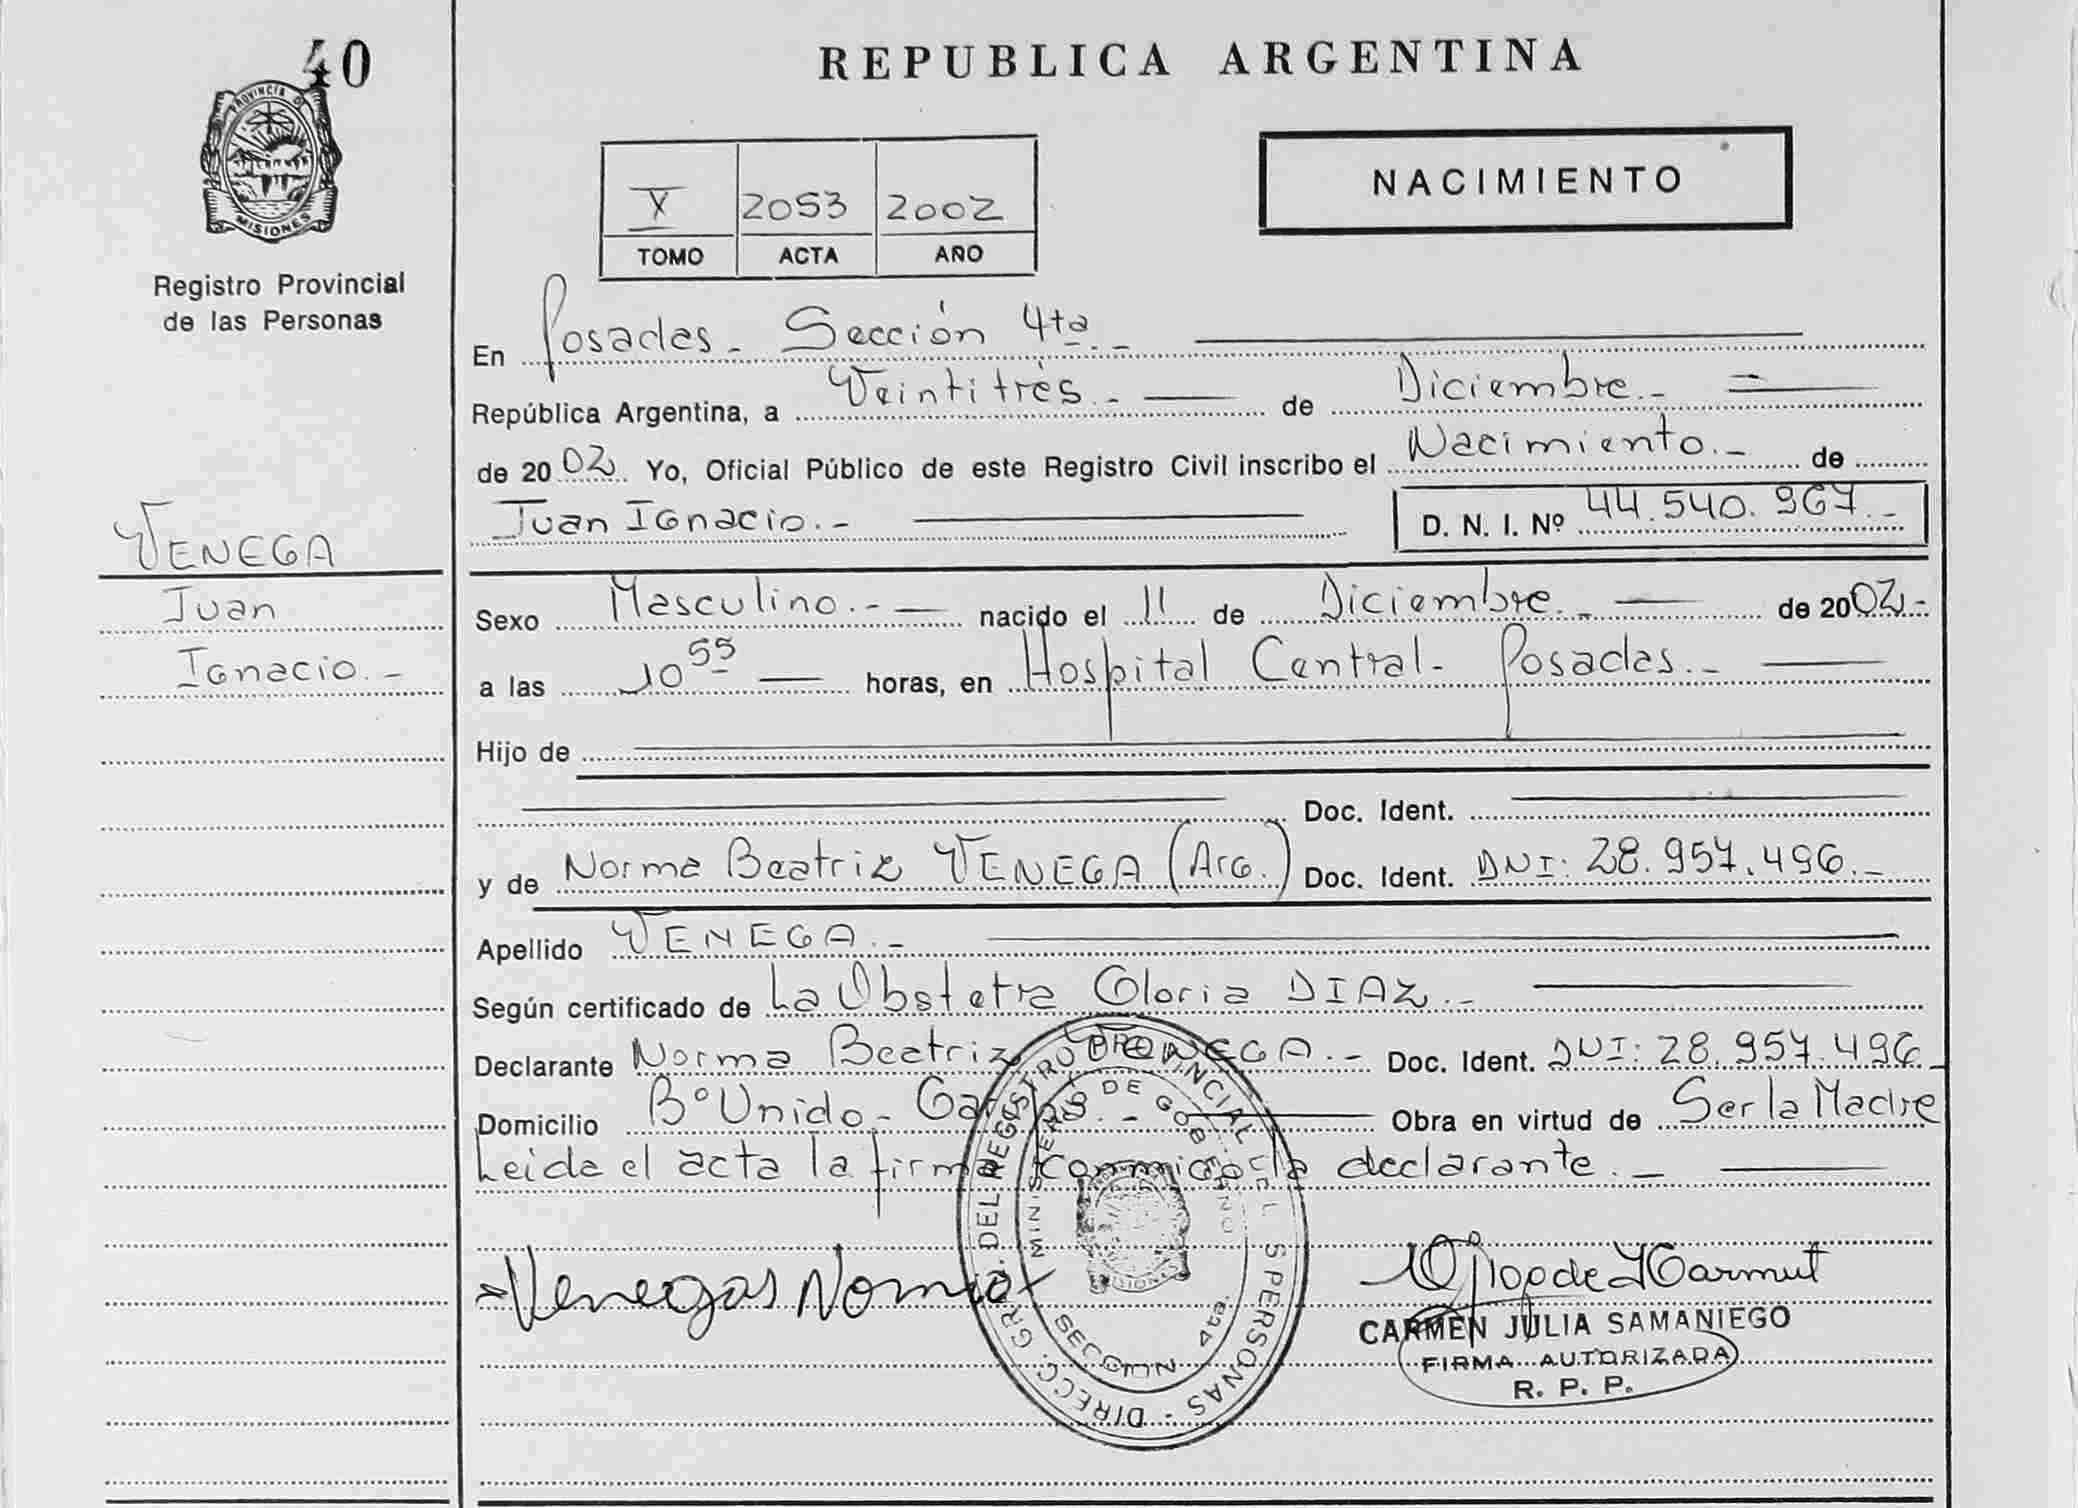 40
PROVINCIA DE
MISIONES
Registro Provincial
de las Personas
VENEGA
Juan
Ignacio.-
REPUBLICA ARGENTINA
X 2053 2002
TOMO ACTA AÑO
NACIMIENTO
En Posadas - Sección 4ta.-
República Argentina, a Veintitrés.- de Diciembre.-
de 2002. Yo, Oficial Público de este Registro Civil inscribo el Nacimiento.- de
Juan Ignacio.- D. N. I. Nº 44.540.967.-
Sexo Masculino.- nacido el 11 de Diciembre.- de 2002.-
a las 10 55 horas, en Hospital Central- Posadas.-
Hijo de
Doc. Ident.
y de Norma Beatriz VENEGA (Arg.) Doc. Ident. DNI: 28.957.496.-
Apellido VENEGA.-
Según certificado de La Obstetra Gloria DIAZ.-
Declarante Norma Beatriz VENEGA.- Doc. Ident. DNI: 28.957.496
Domicilio Bº Unido- Obra en virtud de Ser la Madre
Leida el acta la firma conmigo la declarante.-
Venegas Norma
CARMEN JULIA SAMANIEGO
FIRMA AUTORIZADA
R. P. P.
DIRECC. GRAL. DEL REGISTRO PROVINCIAL DE L S PERSONAS -
MINISTERIO DE GOBIERNO
MISIONES
SECCION 4ta.